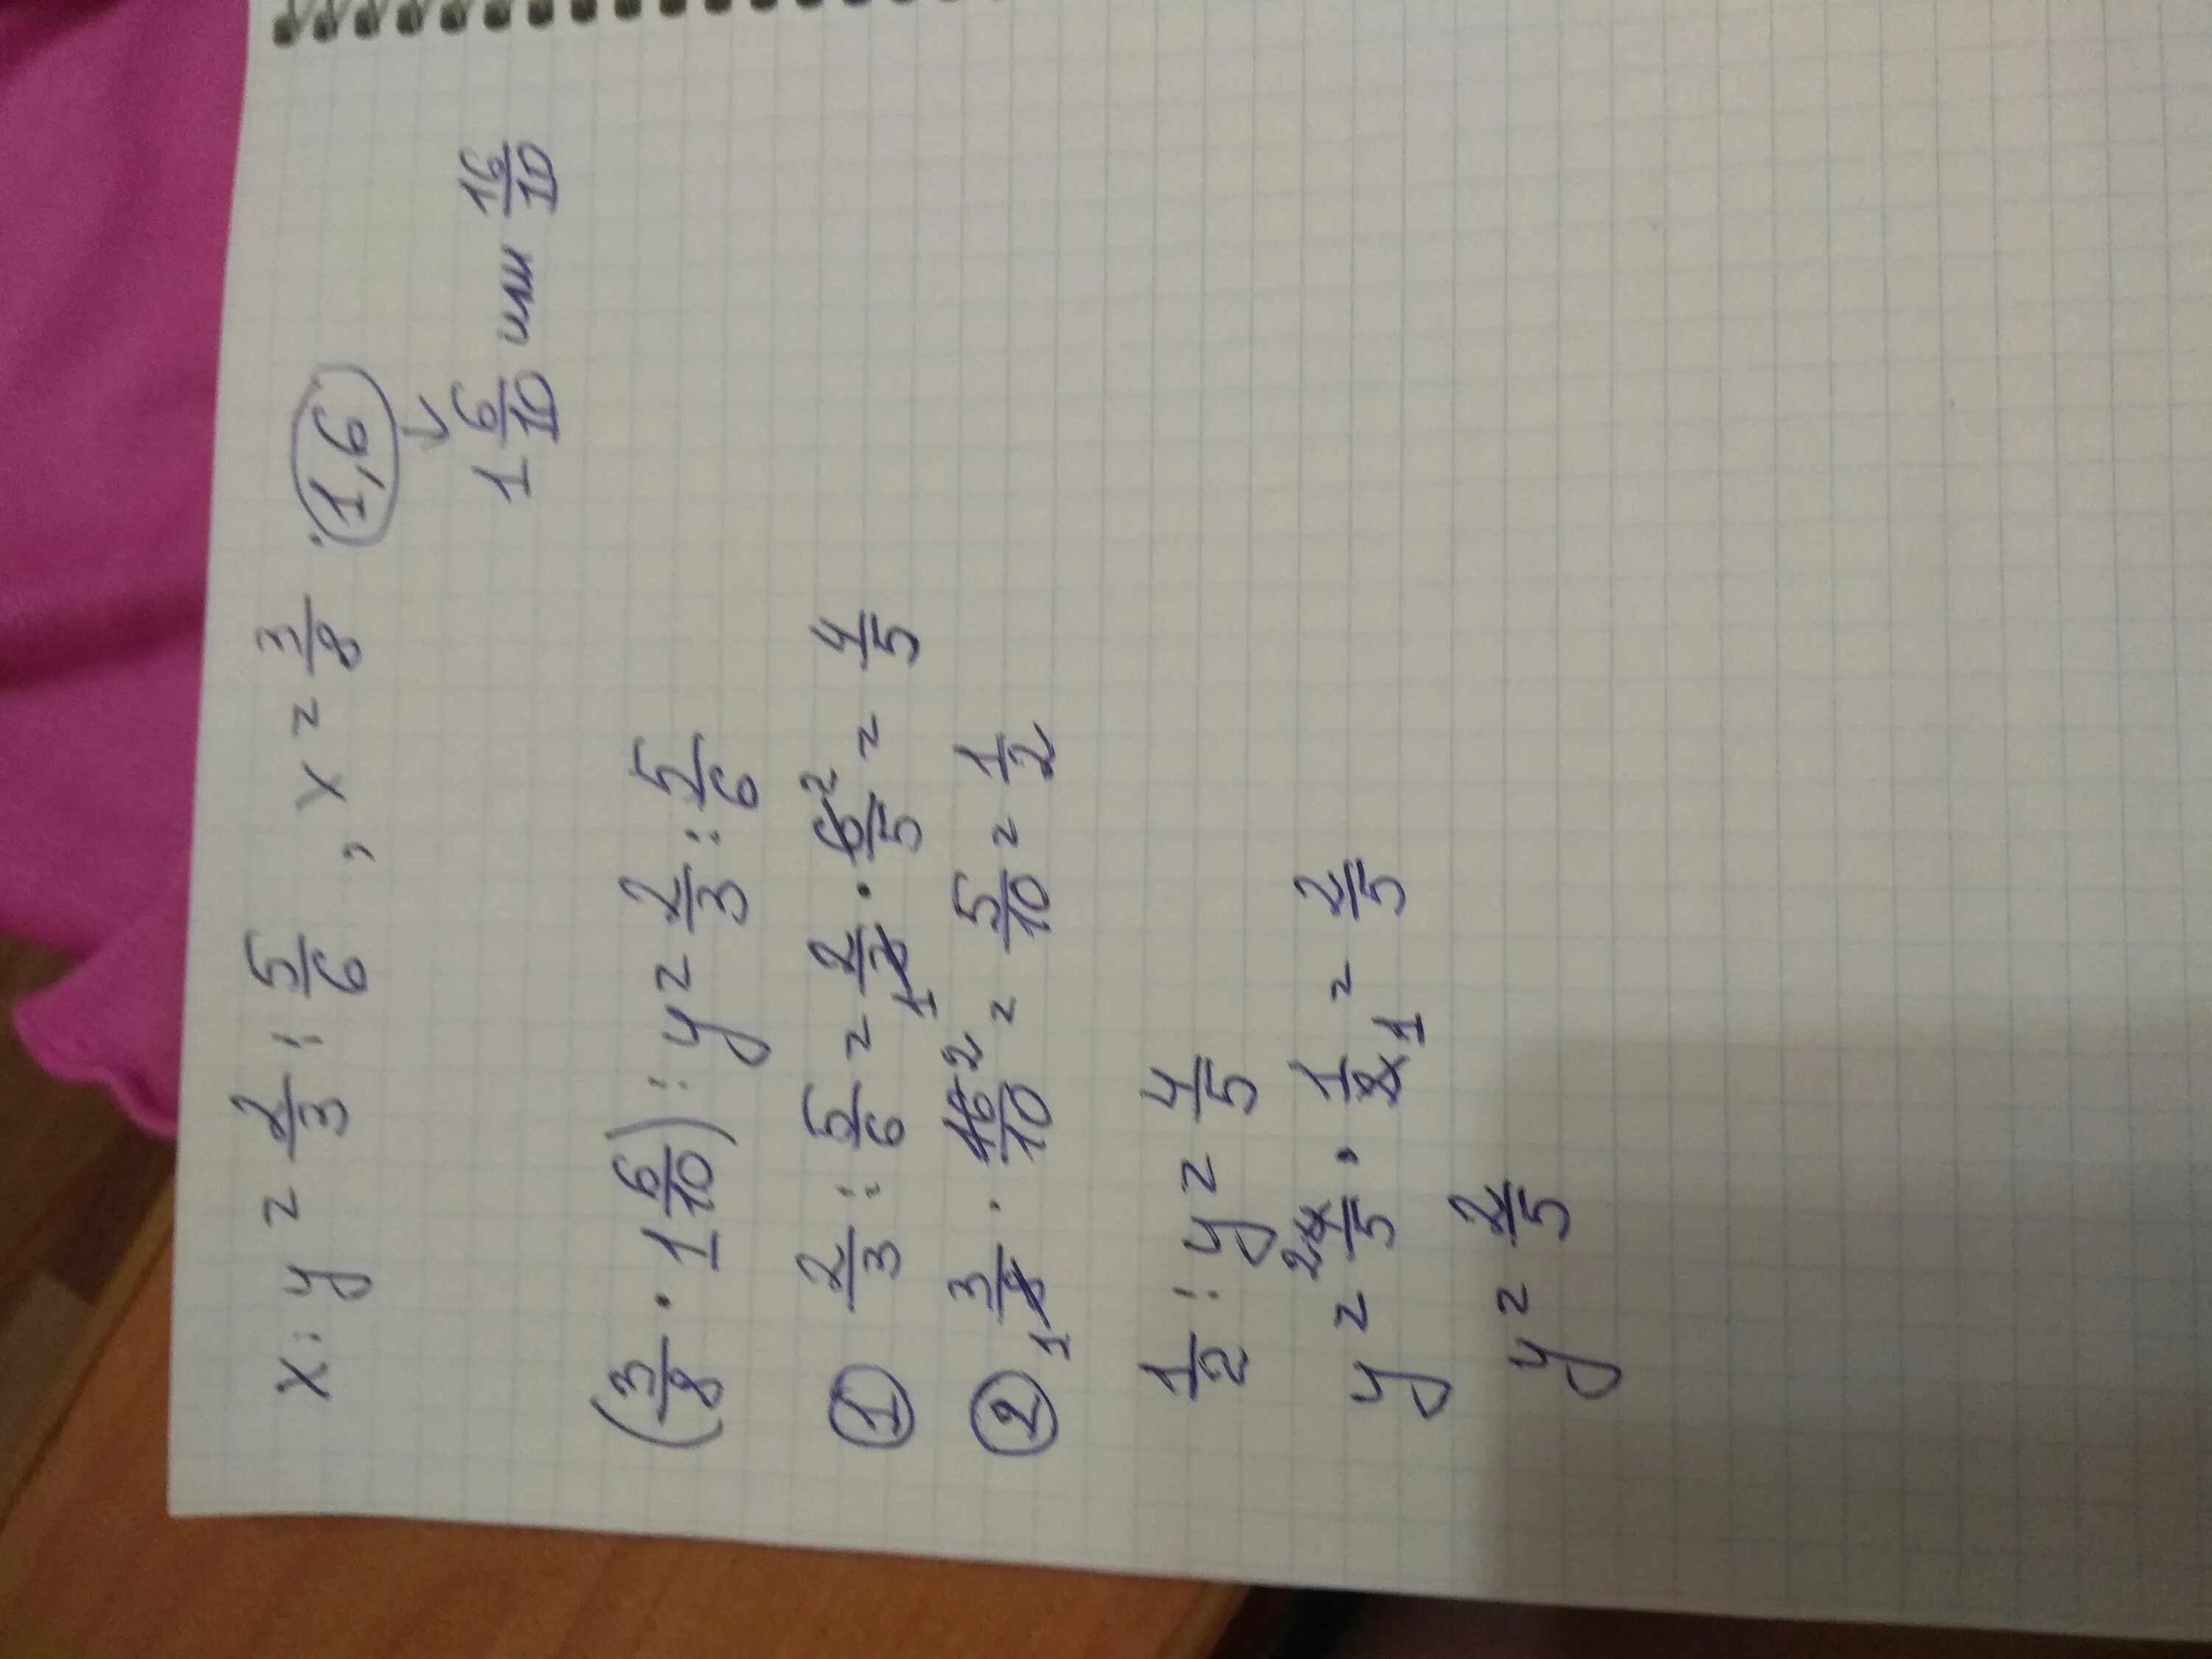 x : y = 2/3 : 5/6 , x = 3/8 · 1,6
1 6/10 или 16/10
(3/8 · 1 6/10) : y = 2/3 : 5/6
① 2/3 : 5/6 = 2/3 1 · 6/5 2 = 4/5
② 3/8 1 · 16/10 2 = 5/10 = 1/2
1/2 : y = 4/5
y = 4/5 2 · 1/2 1 = 2/5
y = 2/5